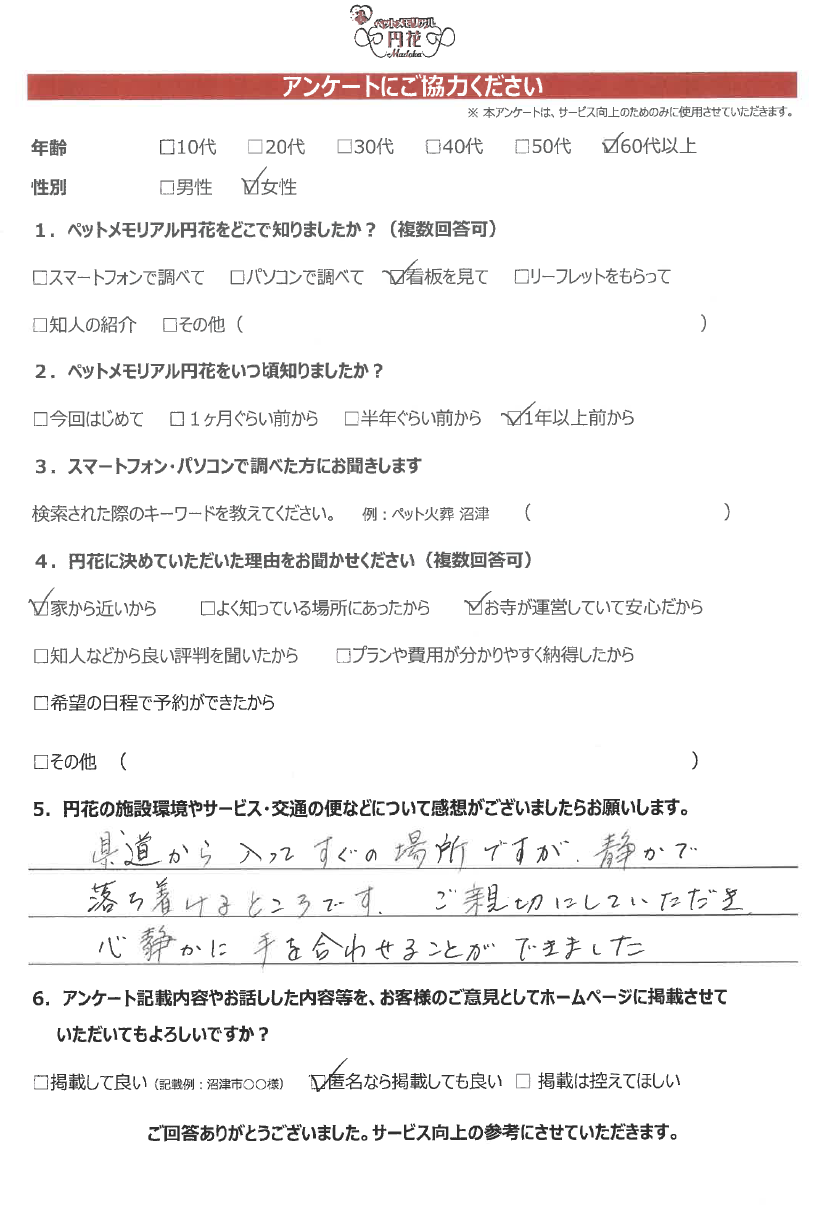 ペットメモリアル
円花
Madoka
アンケートにご協力ください
※ 本アンケートは、サービス向上のためのみに使用させていただきます。
年齢 □10代 □20代 □30代 □40代 □50代 ☑60代以上
性別 □男性 ☑女性
1．ペットメモリアル円花をどこで知りましたか？（複数回答可）
□スマートフォンで調べて □パソコンで調べて ☑看板を見て □リーフレットをもらって
□知人の紹介 □その他（ ）
2．ペットメモリアル円花をいつ頃知りましたか？
□今回はじめて □1ヶ月ぐらい前から □半年ぐらい前から ☑1年以上前から
3．スマートフォン・パソコンで調べた方にお聞きします
検索された際のキーワードを教えてください。 例：ペット火葬 沼津 （ ）
4．円花に決めていただいた理由をお聞かせください（複数回答可）
☑家から近いから □よく知っている場所にあったから ☑お寺が運営していて安心だから
□知人などから良い評判を聞いたから □プランや費用が分かりやすく納得したから
□希望の日程で予約ができたから
□その他 （ ）
5．円花の施設環境やサービス・交通の便などについて感想がございましたらお願いします。
県道から入ってすぐの場所ですが、静かで
落ち着けるところです。 ご親切にしていただき、
心静かに手を合わせることができました
6．アンケート記載内容やお話しした内容等を、お客様のご意見としてホームページに掲載させて
いただいてもよろしいですか？
□掲載して良い（記載例：沼津市〇〇様） ☑匿名なら掲載しても良い □ 掲載は控えてほしい
ご回答ありがとうございました。サービス向上の参考にさせていただきます。